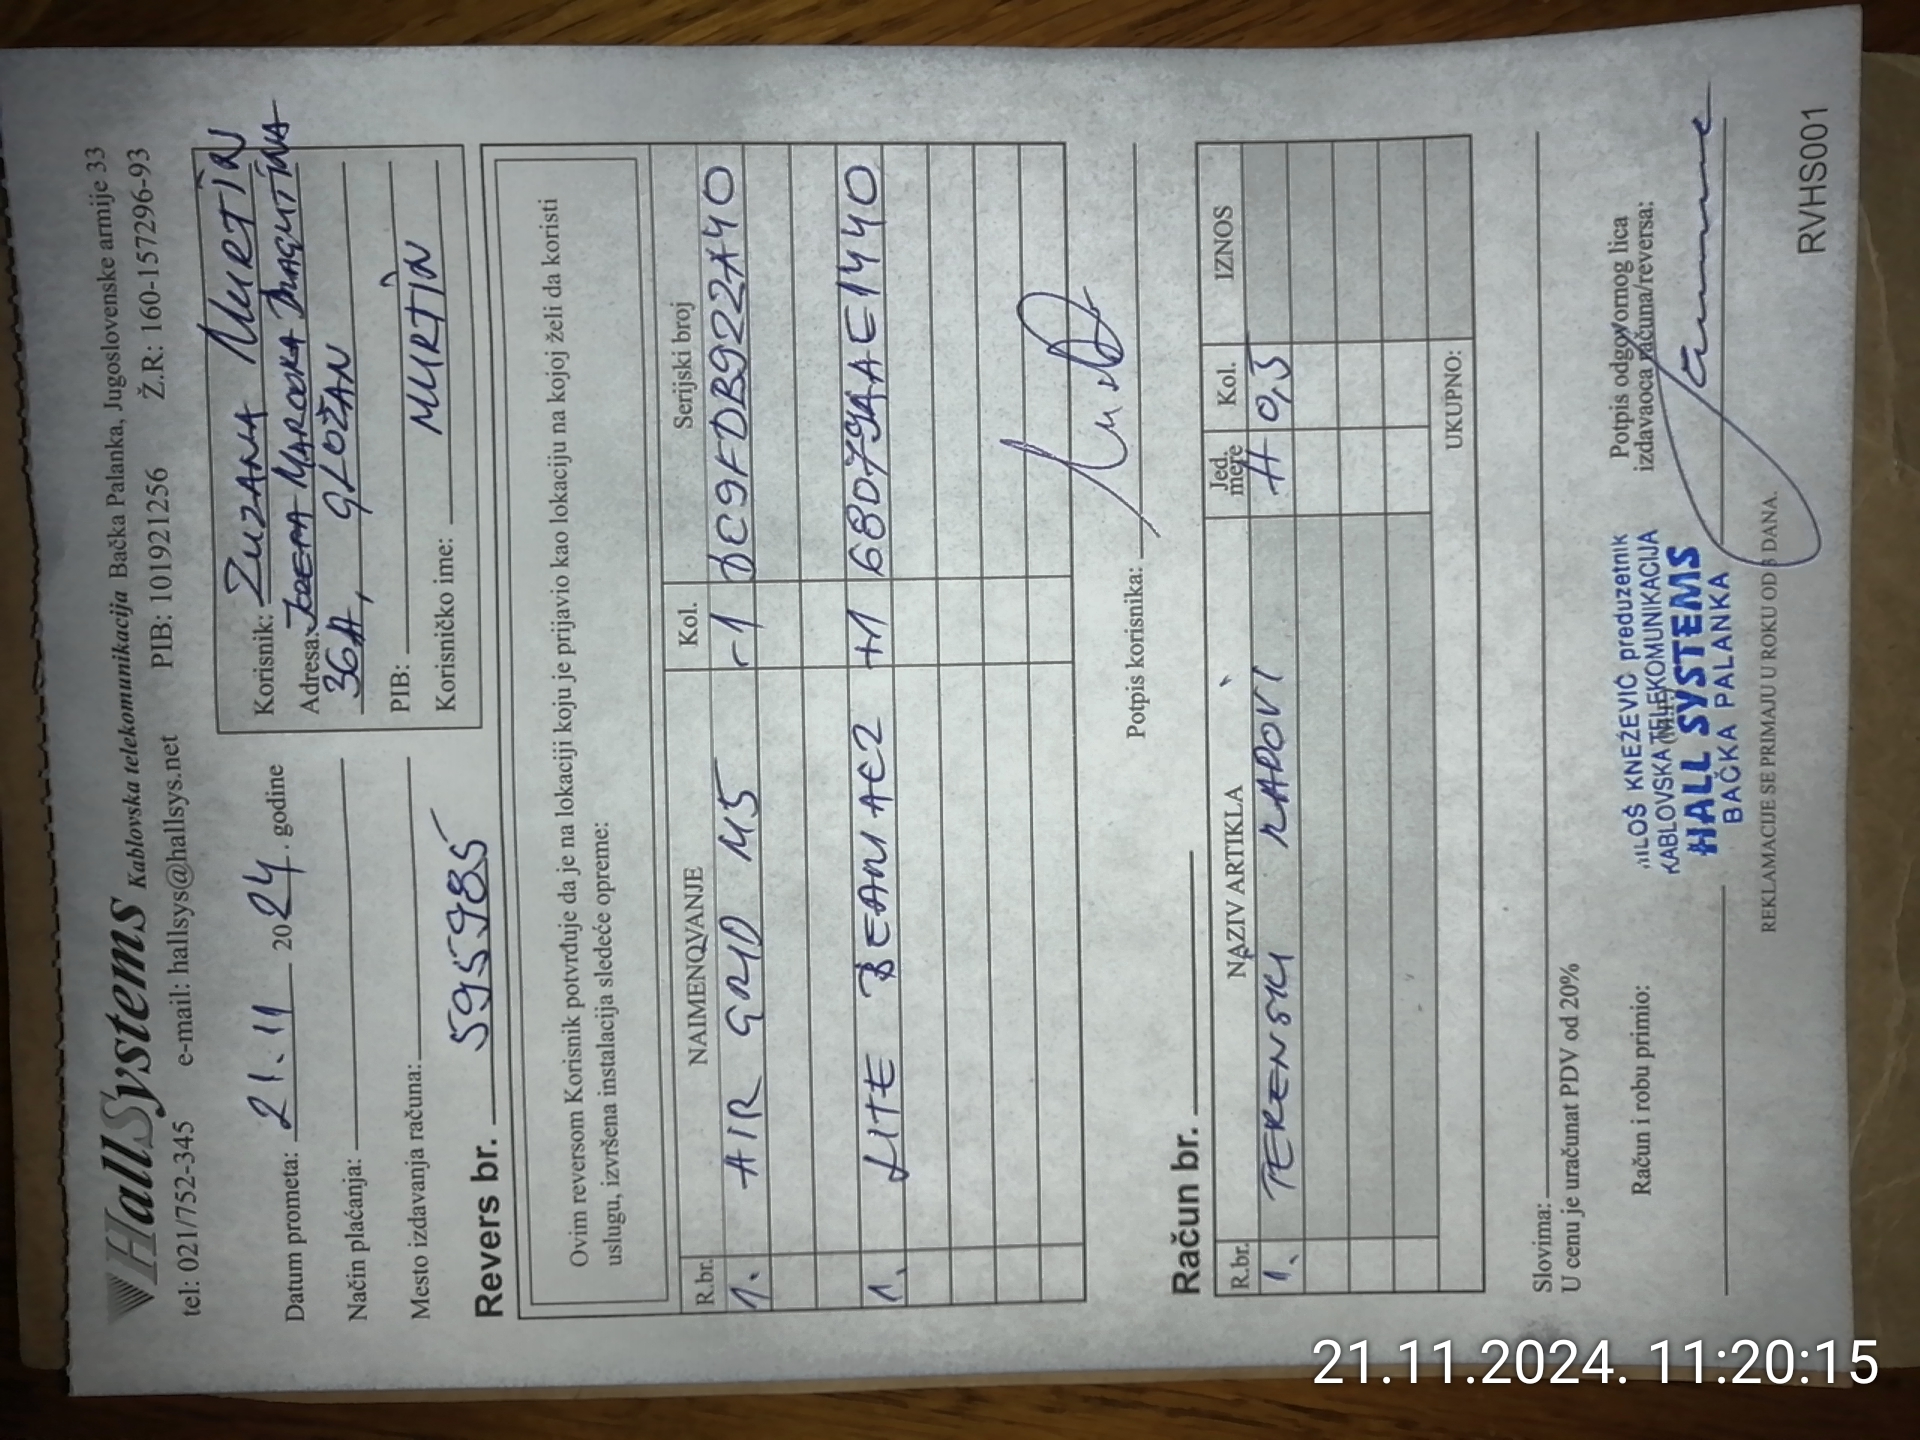 HallSystems Kablovska telekomunikacija Bačka Palanka, Jugoslovenske armije 33
tel: 021/752-345 e-mail: hallsys@hallsys.net PIB: 101921256 Ž.R: 160-157296-93
Datum prometa: 21.11 2024. godine
Način plaćanja:
Mesto izdavanja računa:
Korisnik: ZUZANA MURTIN
Adresa:
36A, GLOŽAN
PIB:
Korisničko ime: MURTIN
Revers br. 595985
Ovim reversom Korisnik potvrđuje da je na lokaciji koju je prijavio kao lokaciju na kojoj želi da koristi
uslugu, izvršena instalacija sledeće opreme:
R.br. NAIMENOVANJE Kol. Serijski broj
1. AIR GRID M5 -1 DC9FDB922A40
1. LITE BEAM AC2 +1
Potpis korisnika:
Račun br.
R.br. NAZIV ARTIKLA Jed. mere Kol. IZNOS
1. TERENSKI RADOVI H 0,5
UKUPNO:
Slovima:
U cenu je uračunat PDV od 20%
Račun i robu primio:
Potpis odgovornog lica
izdavaoca računa/reversa:
MILOŠ KNEŽEVIĆ preduzetnik
KABLOVSKA TELEKOMUNIKACIJA
HALL SYSTEMS
BAČKA PALANKA
REKLAMACIJE SE PRIMAJU U ROKU OD 3 DANA.
RVHS001
21.11.2024. 11:20:15